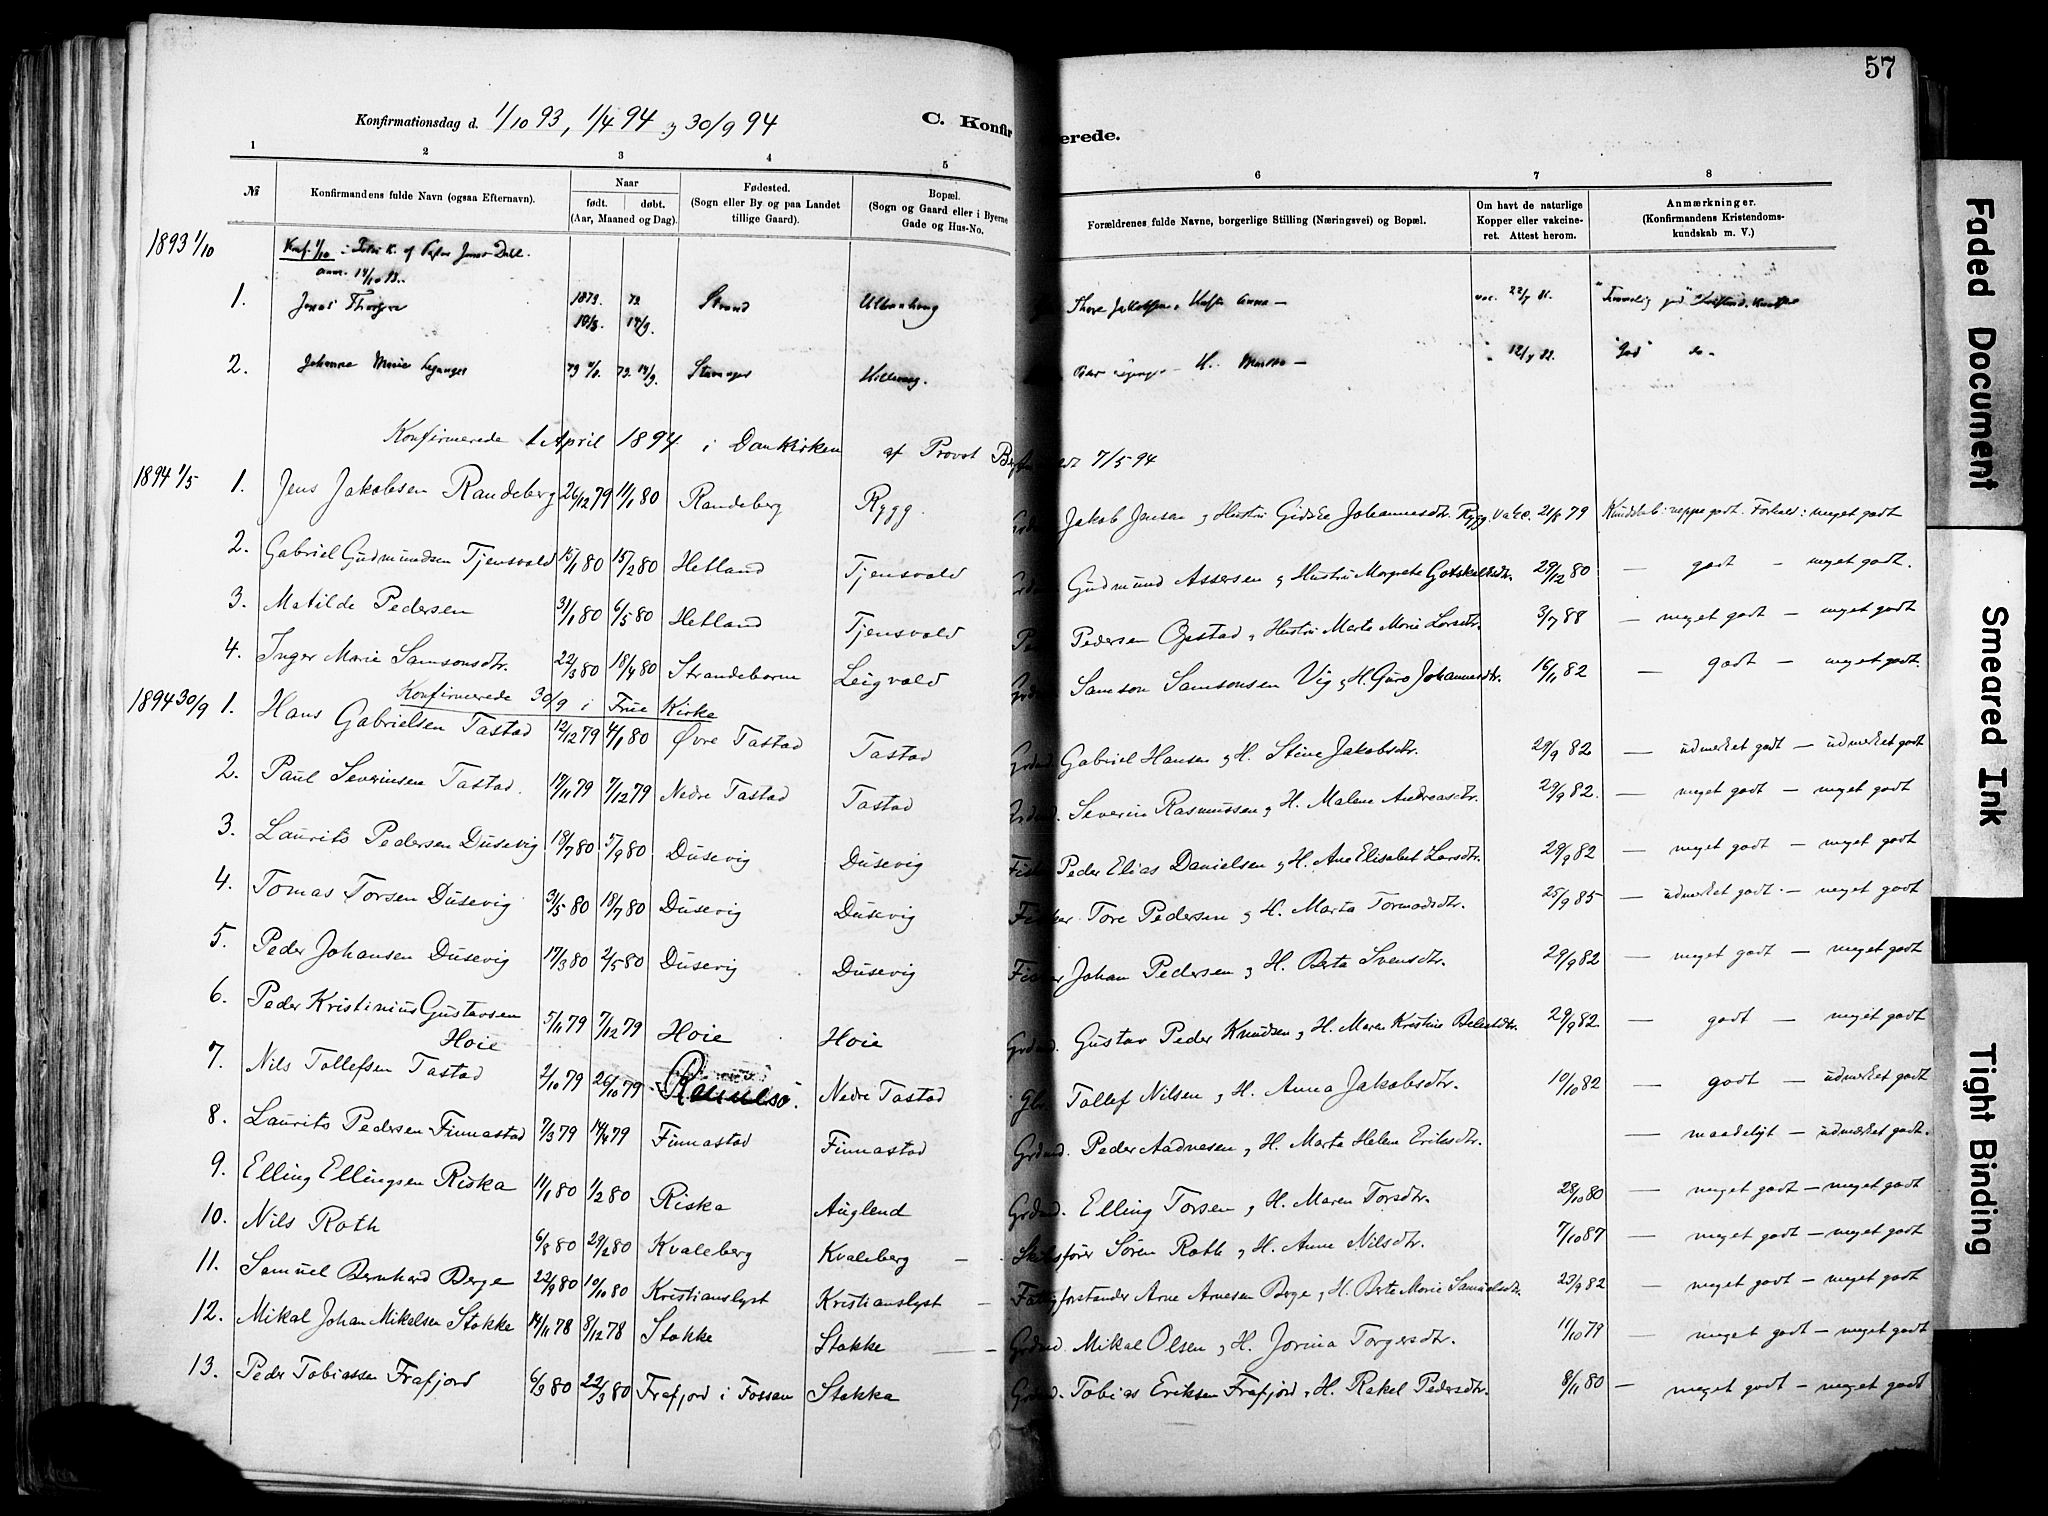 57
Konfirmationsdag d. 1/10 93, 1/4 94 og 30/9 94
C. Konfir erede.
1 2 3 4 5 6 7 8
№ Konfirmandens fulde Navn (ogsaa Efternavn). Naar født. døbt. (Aar, Maaned og Dag). Fødested. (Sogn eller By og paa Landet tillige Gaard). Bopæl. (Sogn og Gaard eller i Byerne Gade og Hus-No. Forældrenes fulde Navne, borgerlige Stilling (Næringsvei) og Bopæl. Om havt de naturlige Kopper eller vakcineret. Attest herom. Anmærkninger. (Konfirmandens Kristendomskundskab m. V.)
1893 1/10 Konf. 1/10 i K. af Jonas Dahl.
1. Jonas 1879 14/9. Strand Thore Jakobsen, Anna — vac. 22/7 81.
2. Johanne Marie 79 79. 14/9. Stavanger H. — "God" do -
Konfirmerede 1 April 1894 i Domkirken af Provst 7/5 94
1894 1/5 1. Jens Jakobsen Randeberg 26/12 79 11/1 80 Randeberg Rygg. Jakob Jensen og Hustru Gidske Johannesdtr. Rygg. Vacc. 21/8 79 Kundskab: neppe godt. Forhold: meget godt
2. Gabriel Gudmundsen Tjensvold 15/1 80 15/2 80 Hetland Tjensvold Gudmund Assersen og Hustru Margrete Gotskalksdtr. 29/12 80 — godt — meget godt.
3. Matilde Pedersen 31/1 80 6/5 80 Hetland Tjensvold Pedersen Opstad og Hustru Marta Marie Larsdtr. 3/7 88 — meget godt — meget godt
4. Inger Marie Samsonsdtr. 22/3 80 18/4 80 Strandeborne Leigvold Samson Samsonsen Vig og H. Guro Johannesdtr. 16/11 82 — godt — meget godt.
1894 30/9 Konfirmerede 30/9 i Frue Kirke
1. Hans Gabrielsen Tastad 12/12 79 4/1 80 Øvre Tastad Tastad Grdmd. Gabriel Hansen og H. Stine Jakobsdtr. 29/9 82 — udmerket godt — udmerket godt
2. Paul Severinsen Tastad. 17/11 79 7/12 79 Nedre Tastad Tastad Grdmd. Severin Rasmussen og H. Malene Andreasdtr. 29/9 82. — meget godt — meget godt
3. Laurits Pedersen Dusevig 18/7 80 5/9 80 Dusevig Dusevig Peder Elias Danielsen og H. Ane Elisabet Larsdtr. 29/9 82 — meget godt — meget godt
4. Tomas Torsen Dusevig 31/5 80 18/7 80 Dusevig Dusevig Fisker Tore Pedersen og H. Marta Tormodsdtr. 25/9 85 — udmerket godt. — meget godt
5. Peder Johansen Dusevig 17/3 80 2/5 80 Dusevig Dusevig Fisker Johan Pedersen og H. Berta Svensdtr. 29/9 82 — meget godt — meget godt
6. Peder Kristinius Gustavsen Hoie 5/11 79 7/12 79 Hoie Hoie Grdmd. Gustav Peder Knudsen og H. Maren Kristine 29/9 82 — godt — meget godt
7. Nils Tollefsen Tastad 2/10 79 26/10 79 Nedre Tastad Tollef Nilsen og H. Anna Jakobsdtr. 10/10 82 — godt — udmerket godt
8. Laurits Pedersen Finnastad 7/3 79 14/4 79 Finnastad Finnastad Grdmd. Peder Aadnesen og H. Marta Helene Eriksdtr. — maadeligt — udmerket godt.
9. Elling Ellingsen Riska 11/1 80 1/2 80 Riska Auglend Grdmd. Elling Torsen og H. Maren Torsdtr. 28/10 80 — meget godt — meget godt
10. Nils Roth 6/8 80 29/8 80 Kvaleberg Kvaleberg — Skibsfører Søren Roth og H. Anne Nilsdtr. 7/10 87 — meget godt — meget godt
11. Samuel Bernhard Berge 22/9 80 10/10 80 Kristianslyst Kristianslyst — Fattigforstander Arne Arnesen Berge og H. Berte Marie Samuelsdtr. 23/9 82 — meget godt — meget godt
12. Mikal Johan Mikelsen Stokke 14/11 78 8/12 78 Stokke Stokke — Grdmd. Mikal Olsen og H. Jorina Torgersdtr. 11/10 79 — meget godt — meget godt
13. Peder Tobiassen Frafjord 6/3 80 22/3 80 Frafjord i Fossan Stokka Grdmd. Tobias Eriksen Frafjord og H. Rakel Pedersdtr. 8/11 80 — meget godt — meget godt
Faded Document
Smeared Ink
Tight Binding